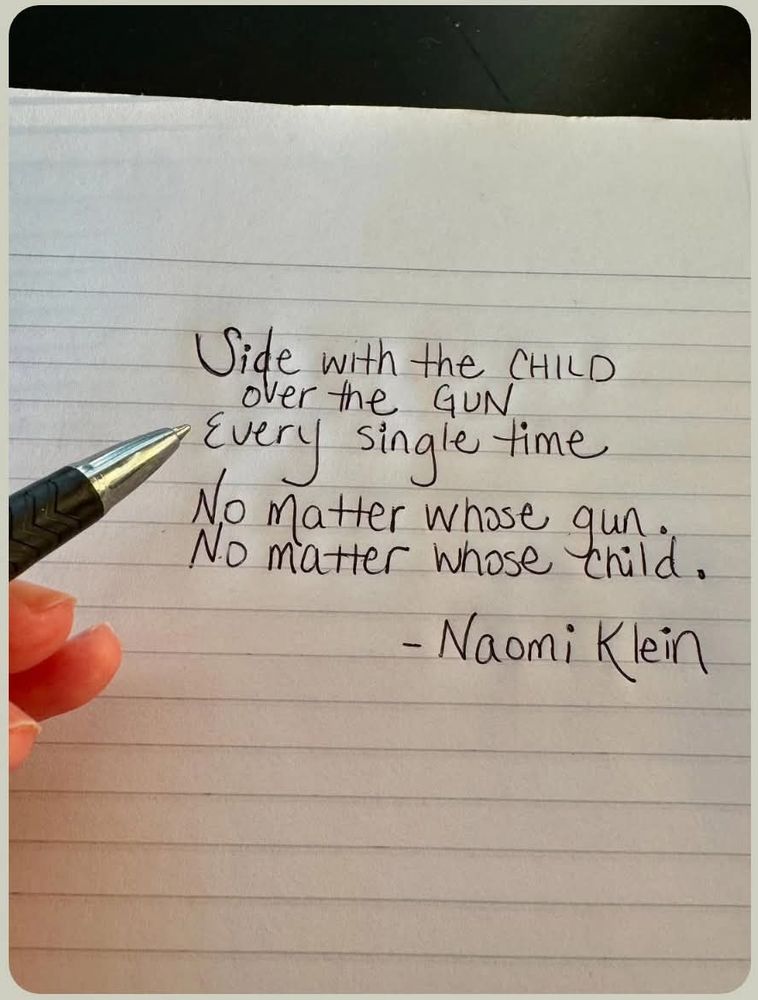 Side with the CHILD
over the GUN
Every single time
No matter whose gun.
No matter whose child.
- Naomi Klein